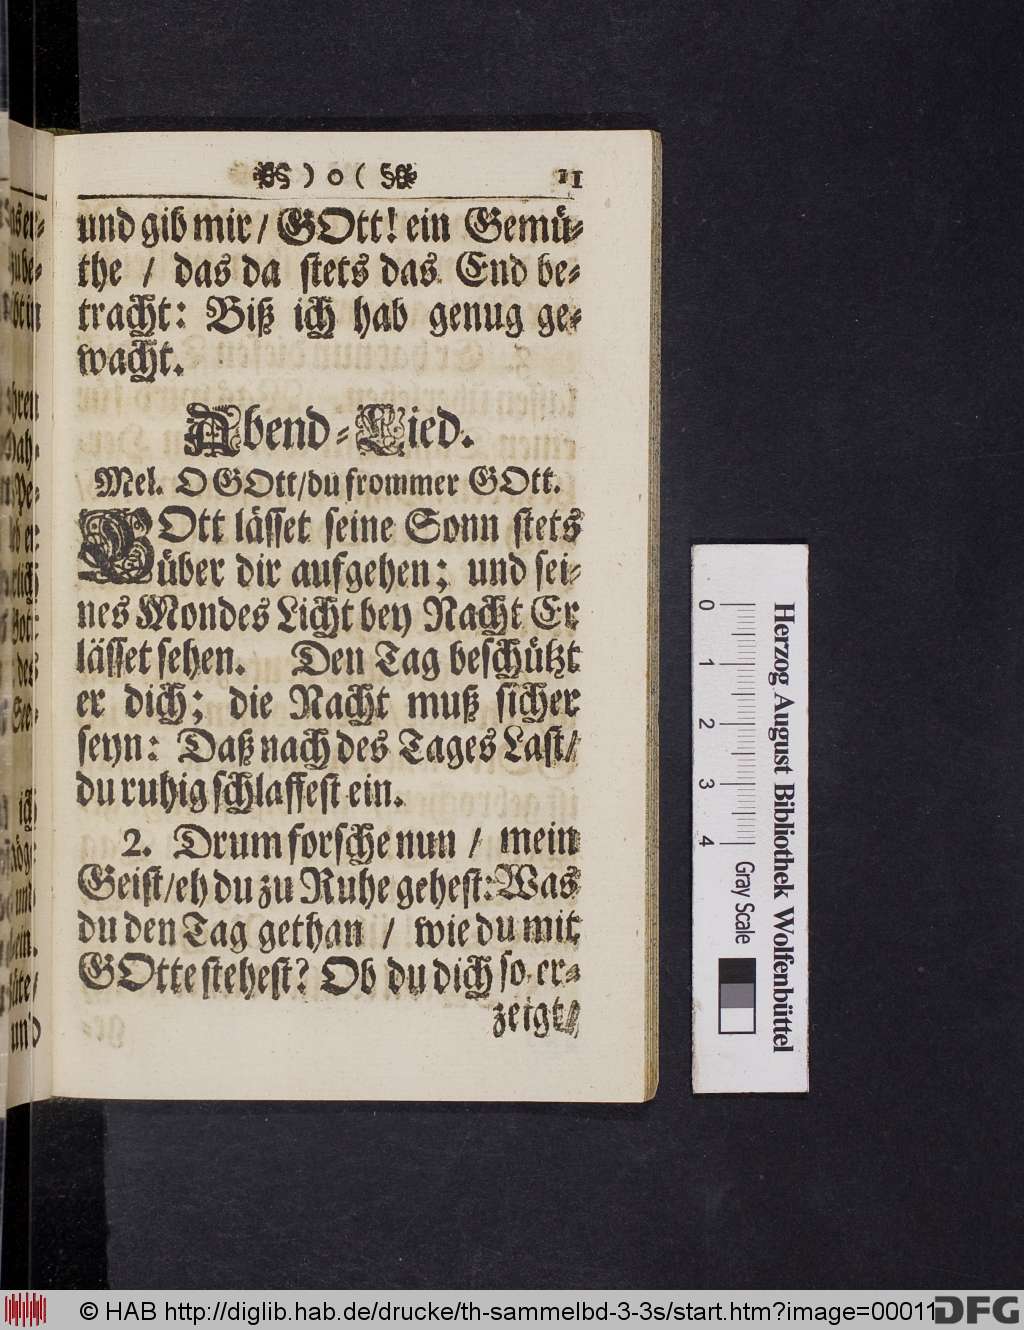 ) o ( 11
und gib mir / GOtt! ein Gemü-
the / das da stets das End be-
tracht: Biß ich hab genug ge-
wacht.
Abend-Lied.
Mel. O GOtt/du frommer GOtt.
GOtt lässet seine Sonn stets
über dir aufgehen; und sei-
nes Mondes Licht bey Nacht Er
lässet sehen. Den Tag beschützt
er dich; die Nacht muß sicher
seyn: Daß nach des Tages Last/
du ruhig schlaffest ein.
2. Drum forsche nun / mein
Geist/eh du zu Ruhe gehest: Was
du den Tag gethan / wie du mit
GOtte stehest? Ob du dich so er-
zeigt/
0 1 2 3 4
Gray Scale
Herzog August Bibliothek Wolfenbüttel
© HAB http://diglib.hab.de/drucke/th-sammelbd-3-3s/start.htm?image=00011
DFG